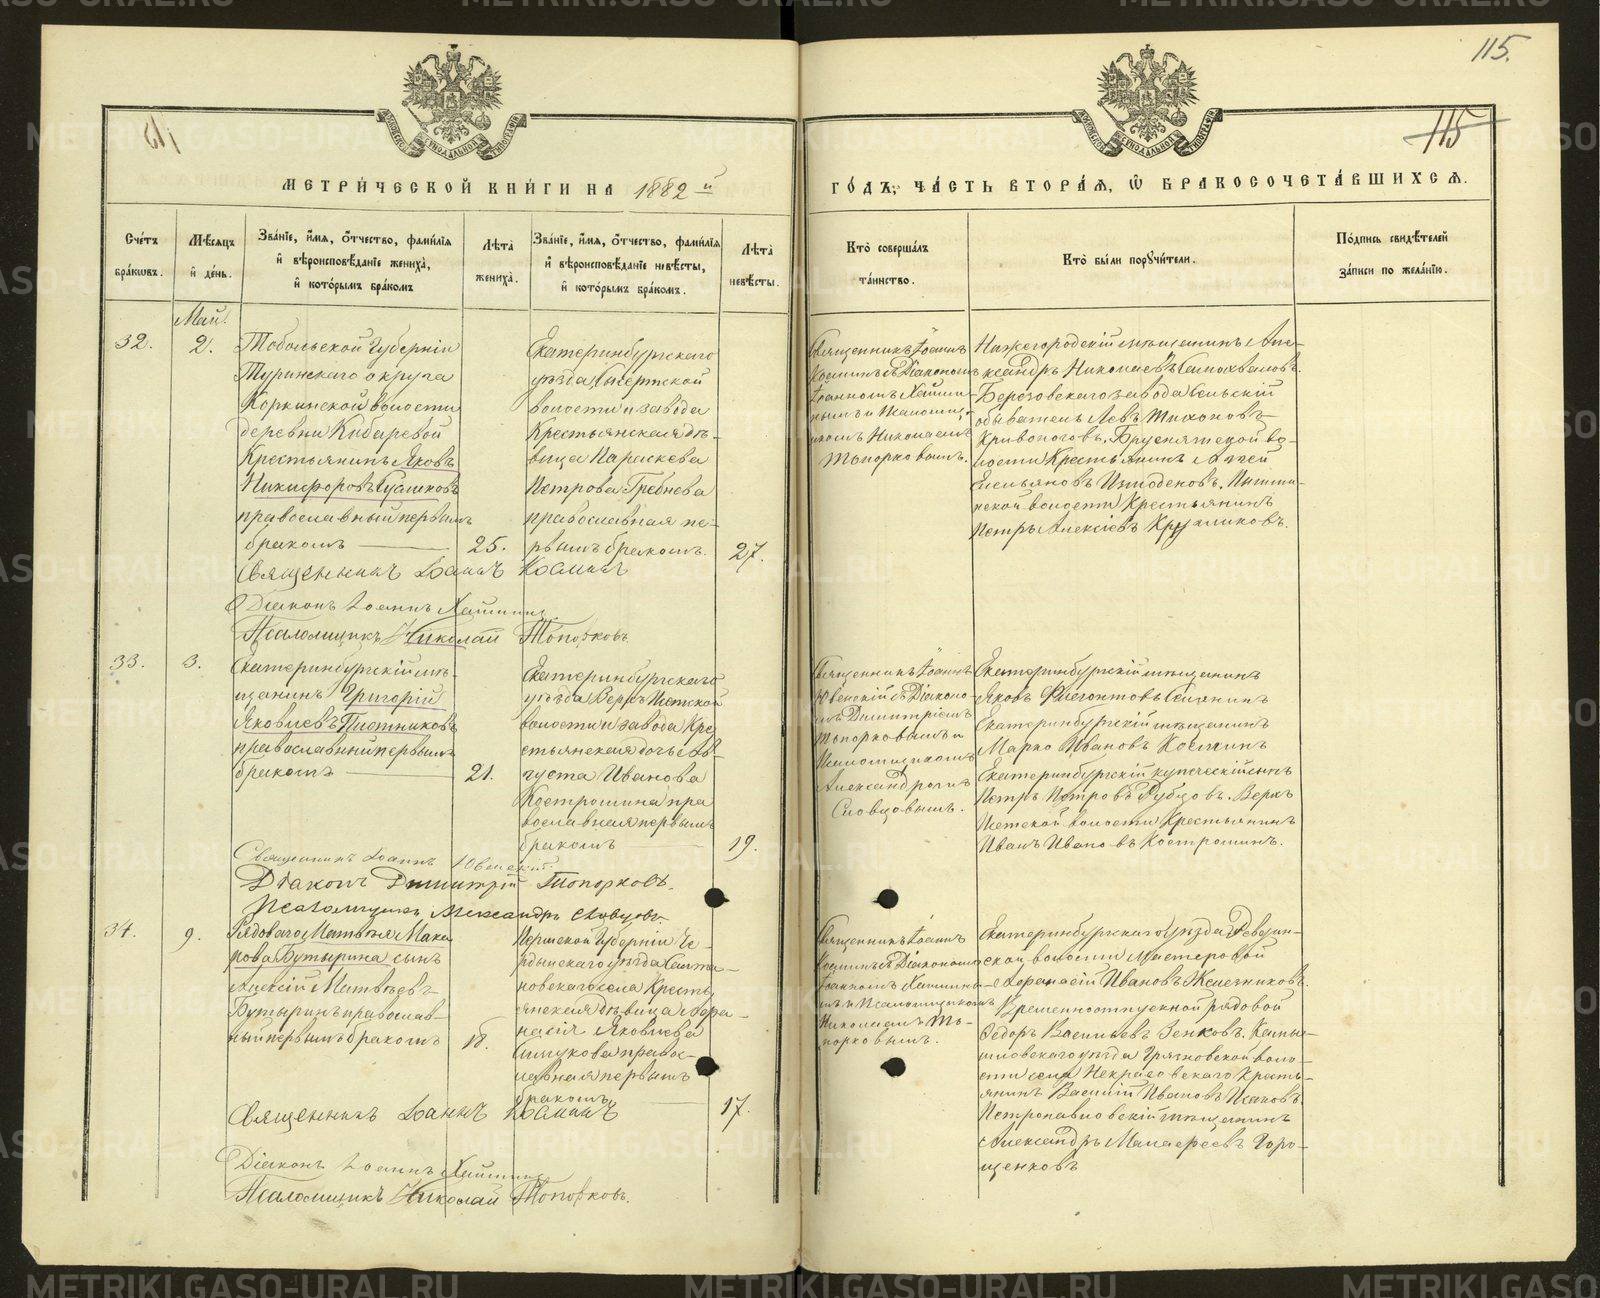 115.
115
МЕТРИ́ЧЕСКОЙ КНИ́ГИ НА 1882 й
ГО́ДЪ, ЧА́СТЬ ВТОРА́Я, Ѿ БРАКОСОЧЕТА́ВШИХСЯ.
Сче́тъ бра́ковъ.
Мѣ́сяцъ и҆ де́нь.
Зва́нїе, и҆́мя, ѻ҆́тчество, фами́лїя
и҆ вѣроисповѣ́данїе жениха̀,
и҆ кото́рымъ бра́комъ
Лѣта̀ жениха̀.
Зва́нїе, и҆́мя, ѻ҆́тчество, фами́лїя
и҆ вѣроисповѣ́данїе невѣ́сты,
и҆ кото́рымъ бра́комъ.
Лѣта̀ невѣ́сты.
Кто̀ соверша́лъ
та́инство.
Кто̀ бы́ли порꙋчи́тели.
По́дпись свидѣ́телей
за́писи по жела́нїю.
Май.
32.
2.
Тобольской Губерніи
Туринскаго округа
Коркинской волости
деревни Кибаревой
Крестьянинъ Яковъ
Никифоровъ
православный первымъ
бракомъ
25.
Екатеринбургскаго
уѣзда, Сысертской
волости и завода
Крестьянская дѣ-
вица Параскева
Петрова Гребнева
православная пе-
рвымъ бракомъ.
27.
Священникъ Іоаннъ
Косминъ съ Діакономъ
Іоанномъ
и Псаломщи-
комъ Николаемъ
Топорковымъ.
Нижегородскій мѣщанинъ Але-
ксандръ Николаевъ Самохваловъ.
Березовскаго завода сельскій
обыватель Левъ Тихоновъ
Кривоноговъ, Бруснятской во-
лости Крестьянинъ
Емельяновъ Измоденовъ,
волости Крестьянинъ
Петръ Алексіевъ
Священникъ Іоаннъ Косминъ
Діаконъ Іоаннъ
Псаломщикъ Николай Топорковъ.
33.
3.
Екатеринбургскій мѣ-
щанинъ Григорій
Яковлевъ Плотниковъ
православный первымъ
бракомъ
21.
Екатеринбургскаго
уѣзда Верхъ Исетской
волости и завода Кре-
стьянская дочь Ав-
густа Иванова
Костромина пра
вославная первымъ
бракомъ
19.
Священникъ Іоаннъ
Ювенскій съ Діаконо-
мъ Димитріемъ
Топорковымъ и
Псаломщикомъ
Александромъ
Словцовымъ.
Екатеринбургскій мѣщанинъ
Яковъ Флегонтовъ
Екатеринбургскій мѣщанинъ
Марко Ивановъ
Екатеринбургскій купеческій сынъ
Петръ Петровъ Рубцовъ. Верхъ
Исетской волости Крестьянинъ
Иванъ Ивановъ Костроминъ.
Священникъ Іоаннъ Ювенскій.
Діаконъ Димитрій Топорковъ.
Псаломщикъ Александръ Словцовъ
34.
9.
Рядоваго Матвѣя Мака
рова Бутырина сынъ
Алексій Матвѣевъ
Бутыринъ православ-
ный первымъ бракомъ
18.
Пермской Губерніи Че-
рдынскаго уѣзда
села Кресть
янская дѣвица Афана-
насія Яковлева
правос-
лавная первымъ
бракомъ
17.
Священникъ Іоаннъ
Косминъ съ Діакономъ
Іоанномъ
и Псаломщикомъ
Николаемъ То-
порковымъ.
Екатеринбургскаго Уѣзда
волости Мастеровой
Афанасій Ивановъ Железниковъ.
Временноотпускной рядовой
Федоръ Васильевъ Зенковъ. Камы-
шловскаго уѣзда Грязновской воло-
сти села Некрасовскаго Кресть-
янинъ Василій Ивановъ Исаковъ.
Петропавловскій мѣщанинъ
Александръ
Священникъ Іоаннъ Косминъ
Діаконъ Іоаннъ
Псаломщикъ Николай Топорковъ.
METRIKI.GASO-URAL.RU